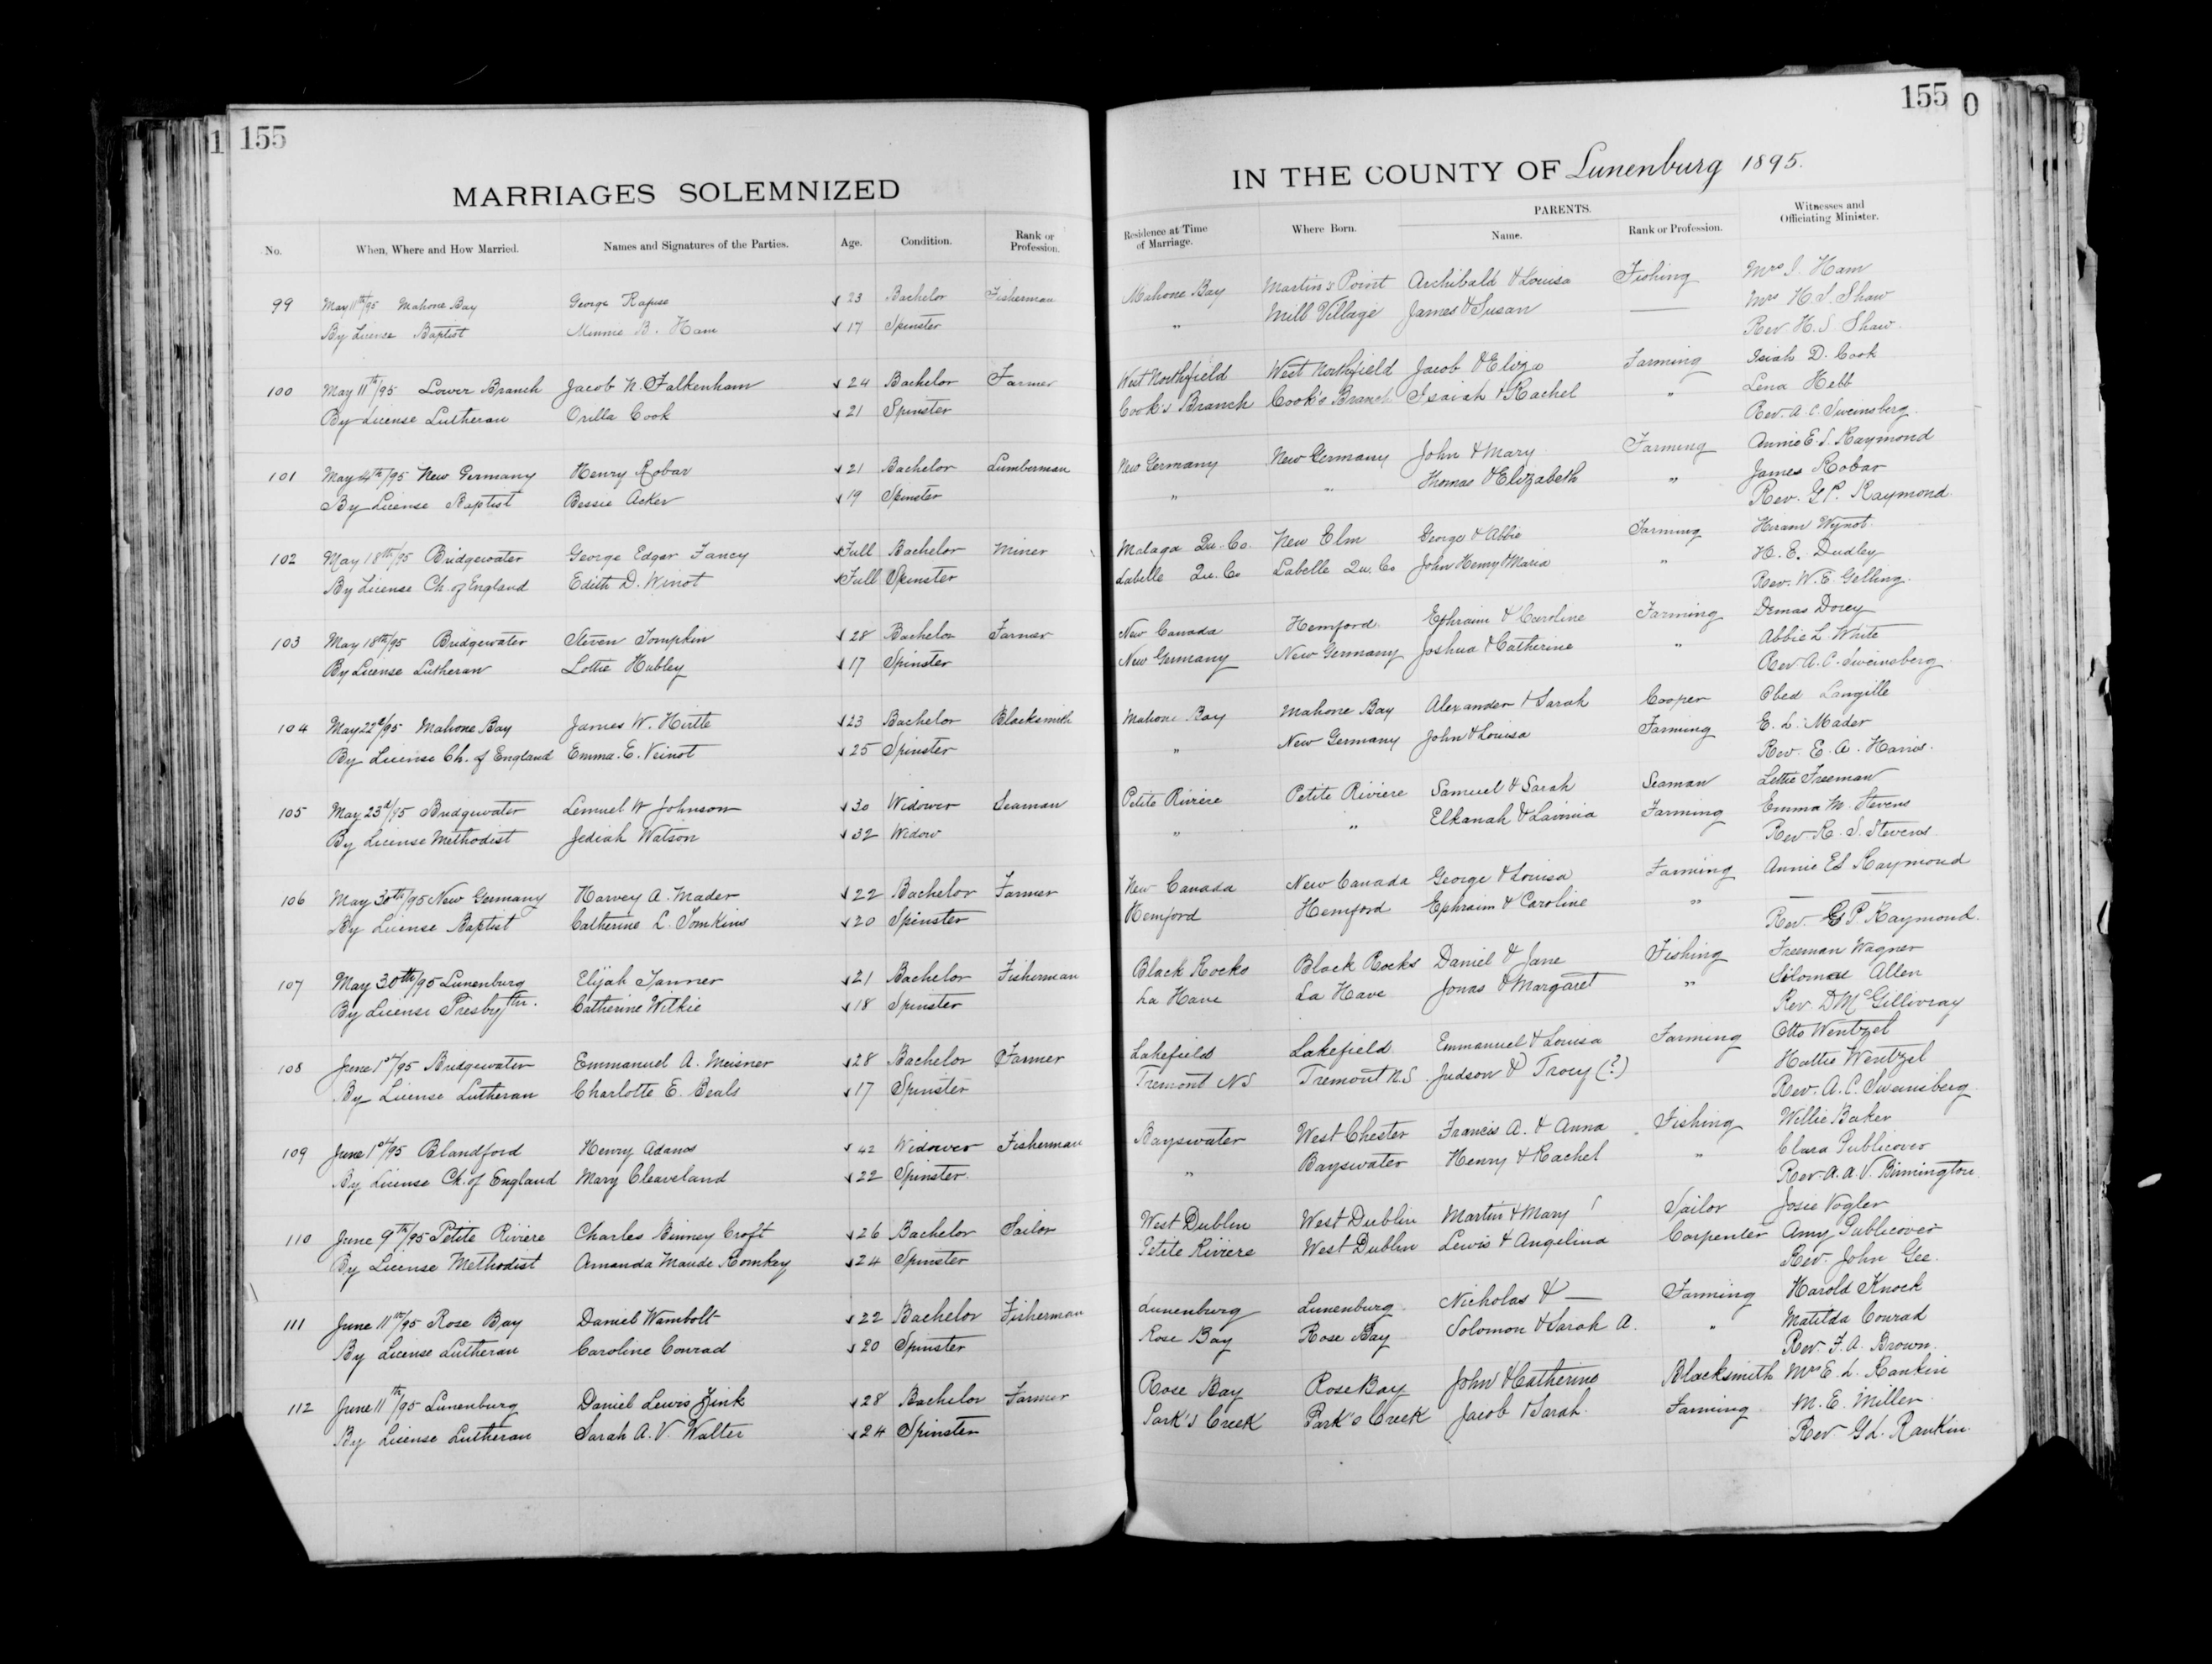 155
MARRIAGES SOLEMNIZED
No. When, Where and How Married. Names and Signatures of the Parties. Age. Condition. Rank or Profession.
99 May 11th/95 Mahone Bay George Rafuse 23 Bachelor Fisherman
By License Baptist Minnie B. Ham 17 Spinster
100 May 11th/95 Lower Branch Jacob N. Falkenham 24 Bachelor Farmer
By License Lutheran Orilla Cook 21 Spinster
101 May 14th/95 New Germany Henry Robar 21 Bachelor Lumberman
By License Baptist Bessie Acker 19 Spinster
102 May 18th/95 Bridgewater George Edgar Fancy Full Bachelor Miner
By License Ch. of England Edith D. Winot Full Spinster
103 May 18th/95 Bridgewater Steven Tompkin 28 Bachelor Farmer
By License Lutheran Lottie Hubley 17 Spinster
104 May 22d/95 Mahone Bay James W. Hirtle 23 Bachelor Blacksmith
By License Ch. of England Emma. E. Veinot 25 Spinster
105 May 23d/95 Bridgewater Lemuel W Johnson 30 Widower Seaman
By License Methodist Jediah Watson 32 Widow
106 May 30th/95 New Germany Harvey A. Mader 22 Bachelor Farmer
By License Baptist Catherine L. Tomkins 20 Spinster
107 May 30th/95 Lunenburg Elijah Tanner 21 Bachelor Fisherman
By License Presbytrn. Catherine Wilkie 18 Spinster
108 June 1st/95 Bridgewater Emmanuel A. Meisner 28 Bachelor Farmer
By License Lutheran Charlotte E. Beals 17 Spinster
109 June 1st/95 Blandford Henry Adams 42 Widower Fisherman
By License Ch. of England Mary Cleaveland 22 Spinster.
110 June 9th/95 Petite Riviere Charles Binney Croft 26 Bachelor Sailor
By License Methodist Amanda Maude Romkey 24 Spinster
111 June 11th/95 Rose Bay Daniel Wambolt 22 Bachelor Fisherman
By License Lutheran Caroline Conrad 20 Spinster
112 June 11th/95 Lunenburg Daniel Lewis Zink 28 Bachelor Farmer
By License Lutheran Sarah A. V. Walter 24 Spinster
155
IN THE COUNTY OF Lunenburg 1895.
Residence at Time of Marriage. Where Born. PARENTS. Name. Rank or Profession. Witnesses and Officiating Minister.
Mahone Bay Martin's Point Archibald & Louisa Fishing Mrs I. Ham
" Mill Village James & Susan — Mrs H. S. Shaw
Rev H. S. Shaw.
West Northfield West Northfield Jacob & Eliza Farming Isiah D. Cook
Cook's Branch Cook's Branch Isaiah & Rachel " Lena Hebb
Rev. A. C. Sweinsberg.
New Germany New Germany John & Mary Farming Annie E. S. Raymond
" " Thomas & Elizabeth " James Robar
Rev. G. P. Raymond.
Malaga Qu. Co. New Elm George & Abbie Farming Hiram Wynot
Labelle Qu. Co Labelle Qu. Co John Henry & Maria " H. E. Dudley
Rev. W. E. Gelling.
New Canada Hemford Ephraim & Caroline Farming Demas Dorey
New Germany New Germany Joshua & Catherine " Abbie L. White
Rev. A. C. Sweinsberg
Mahone Bay Mahone Bay Alexander & Sarah Cooper Obed Langille
" New Germany John & Louisa Farming E. L. Mader
Rev. E. A. Harris.
Petite Riviere Petite Riviere Samuel & Sarah Seaman Lettie Freeman
" " Elkanah & Lavinia Farming Emma M. Stevens
Rev. R. S. Stevens
New Canada New Canada George & Louisa Farming Annie ES Raymond
Hemford Hemford Ephraim & Caroline " —
Rev. G P. Raymond.
Black Rocks Black Rocks Daniel & Jane Fishing Freeman Wagner
La Have La Have Jonas & Margaret " Allen
Rev. D McGillivray
Lakefield Lakefield Emmanuel & Louisa Farming Otto Wentzel
Tremont NS Tremont N.S. Judson & Troey (?) Hattie Wentzel
Rev. A. C. Sweinsberg.
Bayswater West Chester Francis A. & Anna Fishing Willie Baker
" Bayswater Henry & Rachel " Clara Publicover
Rev. A. A. V. Binnington.
West Dublin West Dublin Martin & Mary Sailor Josie Vogler
Petite Riviere West Dublin Lewis & Angelina Carpenter Amy Publicover
Rev. John Gee.
Lunenburg Lunenburg Nicholas & — Farming Harold Knock
Rose Bay Rose Bay Solomon & Sarah A. " Matilda Conrad
Rev. F. A. Brown.
Rose Bay Rose Bay John & Catherine Blacksmith Mrs E. L. Rankin
Park's Creek Park's Creek Jacob & Sarah. Farming. M. E. Miller
Rev. G L. Rankin.